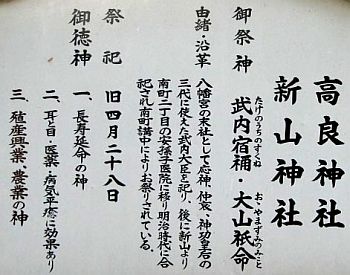 高良神社
新山神社
御祭神 武内宿祢・大山祇命
たけのうちのすくね おおやまずみのみこと
由緒・沿革
八幡宮の末社として応神、仲哀、神功皇后の
三代に仕えた武内大臣を祀り、後に新山より
南町二丁目の安孫子医院に移り明治時代に合
祀され南町講中によりお祭りされている。
祭祀 旧四月二十八日
御徳神 一、長寿延命の神
二、耳と目・医薬・病気平癒に効果あり
三、殖産興業、農業の神